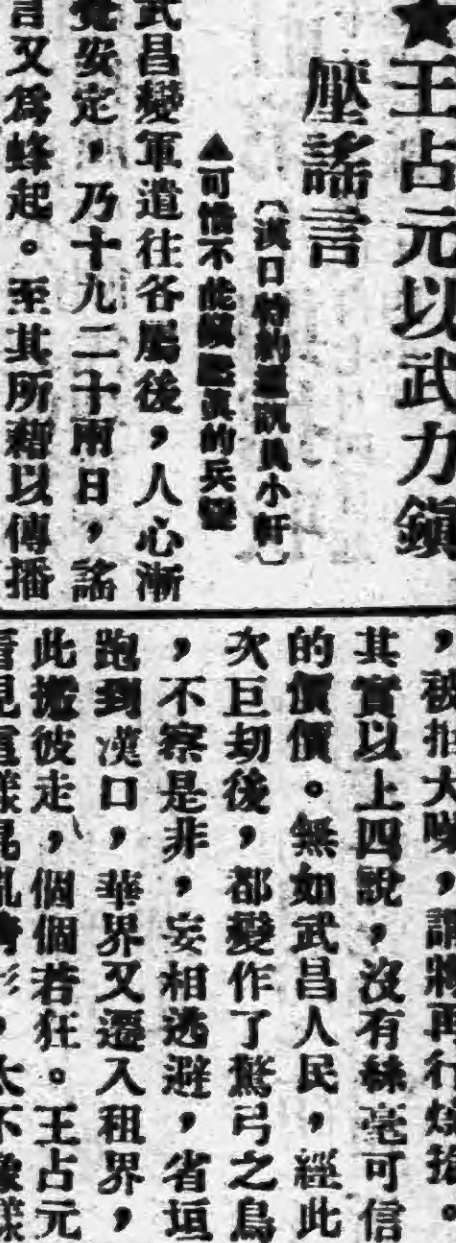 ★王占元以武力鎮
壓謠言
〔漢口特約通訊員小軒〕
▲可惜不能鎮壓真的兵變
武昌變軍遣往各屬後，人心漸
覺安定，乃十九二十兩日，謠
言又爲蜂起。至其所藉以傳播
，被拒大嘩，謂將再行燒搶。
其實以上四說，沒有絲毫可信
的價價。無如武昌人民，經此
次巨刼後，都變作了驚弓之鳥
，不察是非，妄相逃避，省垣
跑到漢口，華界又遷入租界，
此搬彼走，個個若狂。王占元
看見這樣昆亂情形，太不像樣